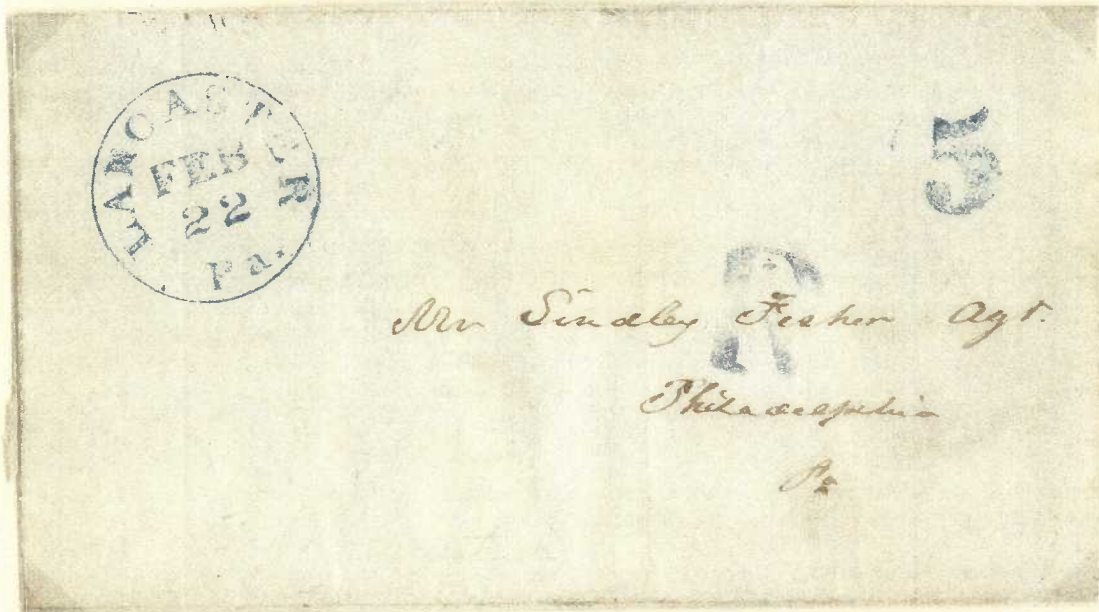 LANCASTER
FEB
22
Pa.
5
R
Mr Lindley Fisher Agt.
Philadelphia
Pa